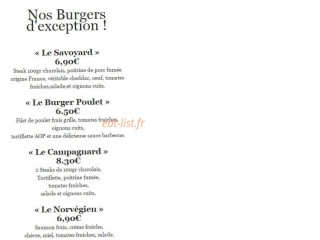 Nos Burgers
d'exception !
« Le Savoyard »
6,90€
Steak 100gr charolais, poitrine de porc fumée
origine France, véritable cheddar, oeuf, tomates
fraîches,salade,et oignons cuits.
« Le Burger Poulet »
6.50€
Filet de poulet frais grille, tomates fraîches,
oignons cuits,
tartiflette AOP et une délicieuse sauce barbecue.
eat-list.fr
« Le Campagnard »
8.30€
2 Steaks de 100gr charolais,
Tartiflette, poitrine fumée,
tomates fraîches,
salade et oignons cuits.
« Le Norvégien »
6,90€
Saumon frais, crème fraîche,
chèvre, miel, tomates fraîches, salade.